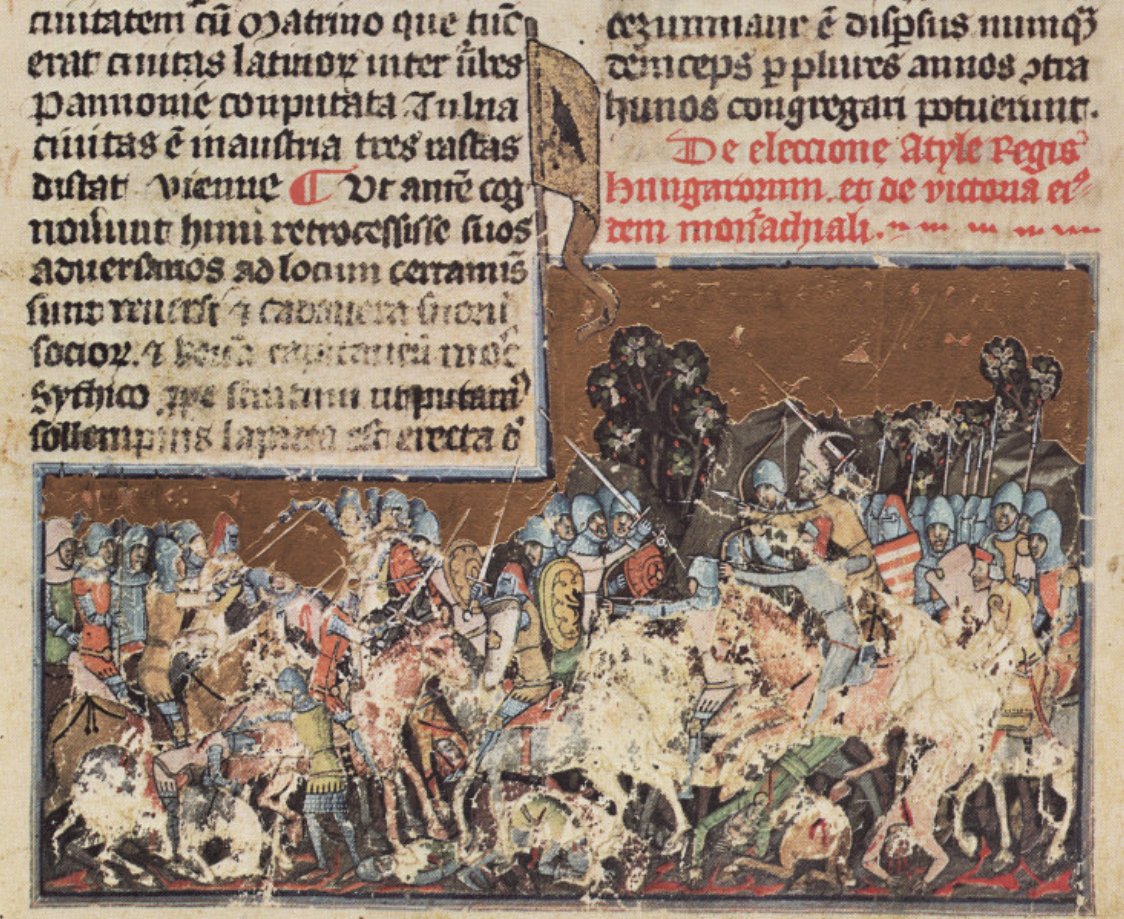 ciuitatem cū Matrino que tūc
erat ciuitas latinoꝝ inter ūbes
Pannonie conputata Tulna
ciuitas ē in austria tres rastas
distat vienne ¶ Vt autē cog
nouiūt huni retrocessisse suos
aduersarios ad locum certamīs
sunt reuersi ⁊ cadauera suorū
socioꝝ. ⁊ capitaneū
Sythico
sollempnis lapidea est erecta
ē disp̄sus nunqꝫ
deinceps p plures annos ↄtra
hunos congregari potuerunt.
De eleccione Atyle Regis
hungarorum. et de victoria eiꝰ
dem monarchiali.